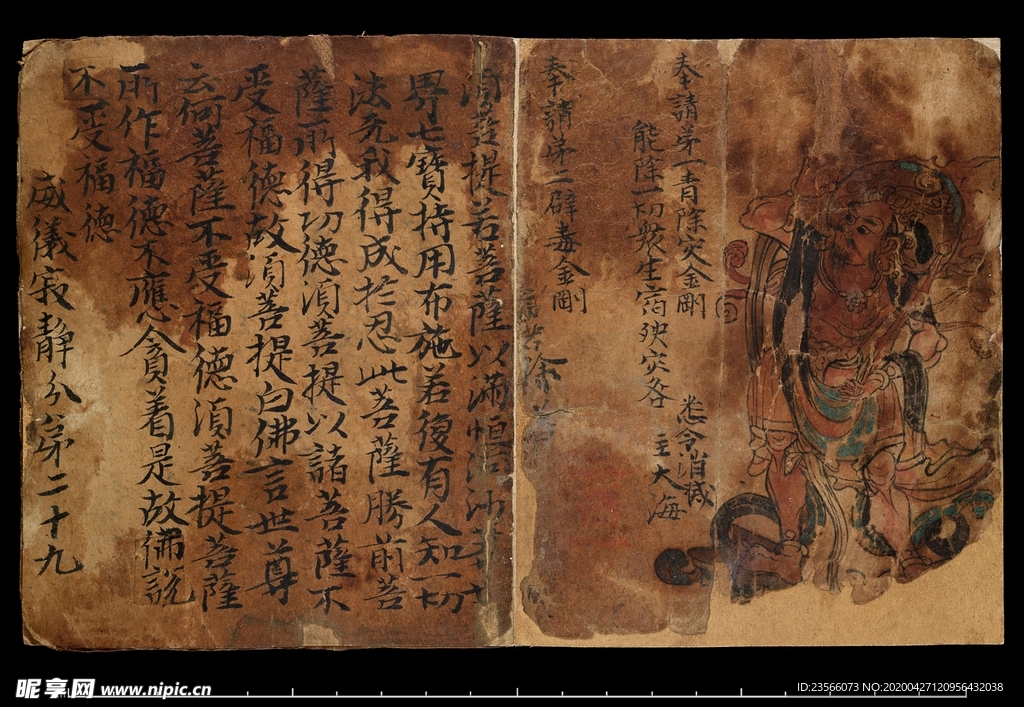 奉請第一青除灾金剛
能除一切衆生宿殃灾咎
悉令消滅
主大海
奉請第二辟毒金剛
須菩提若菩薩以滿恒河沙等世
界七寶持用布施若復有人知一切
法无我得成於忍此菩薩勝前菩
薩所得功德須菩提以諸菩薩不
受福德故須菩提白佛言世尊
云何菩薩不受福德須菩提菩薩
所作福德不應貪着是故佛說
不受福德
威儀寂靜分第二十九
昵享网 www.nipic.cn
ID:23566073 NO:20200427120956432038